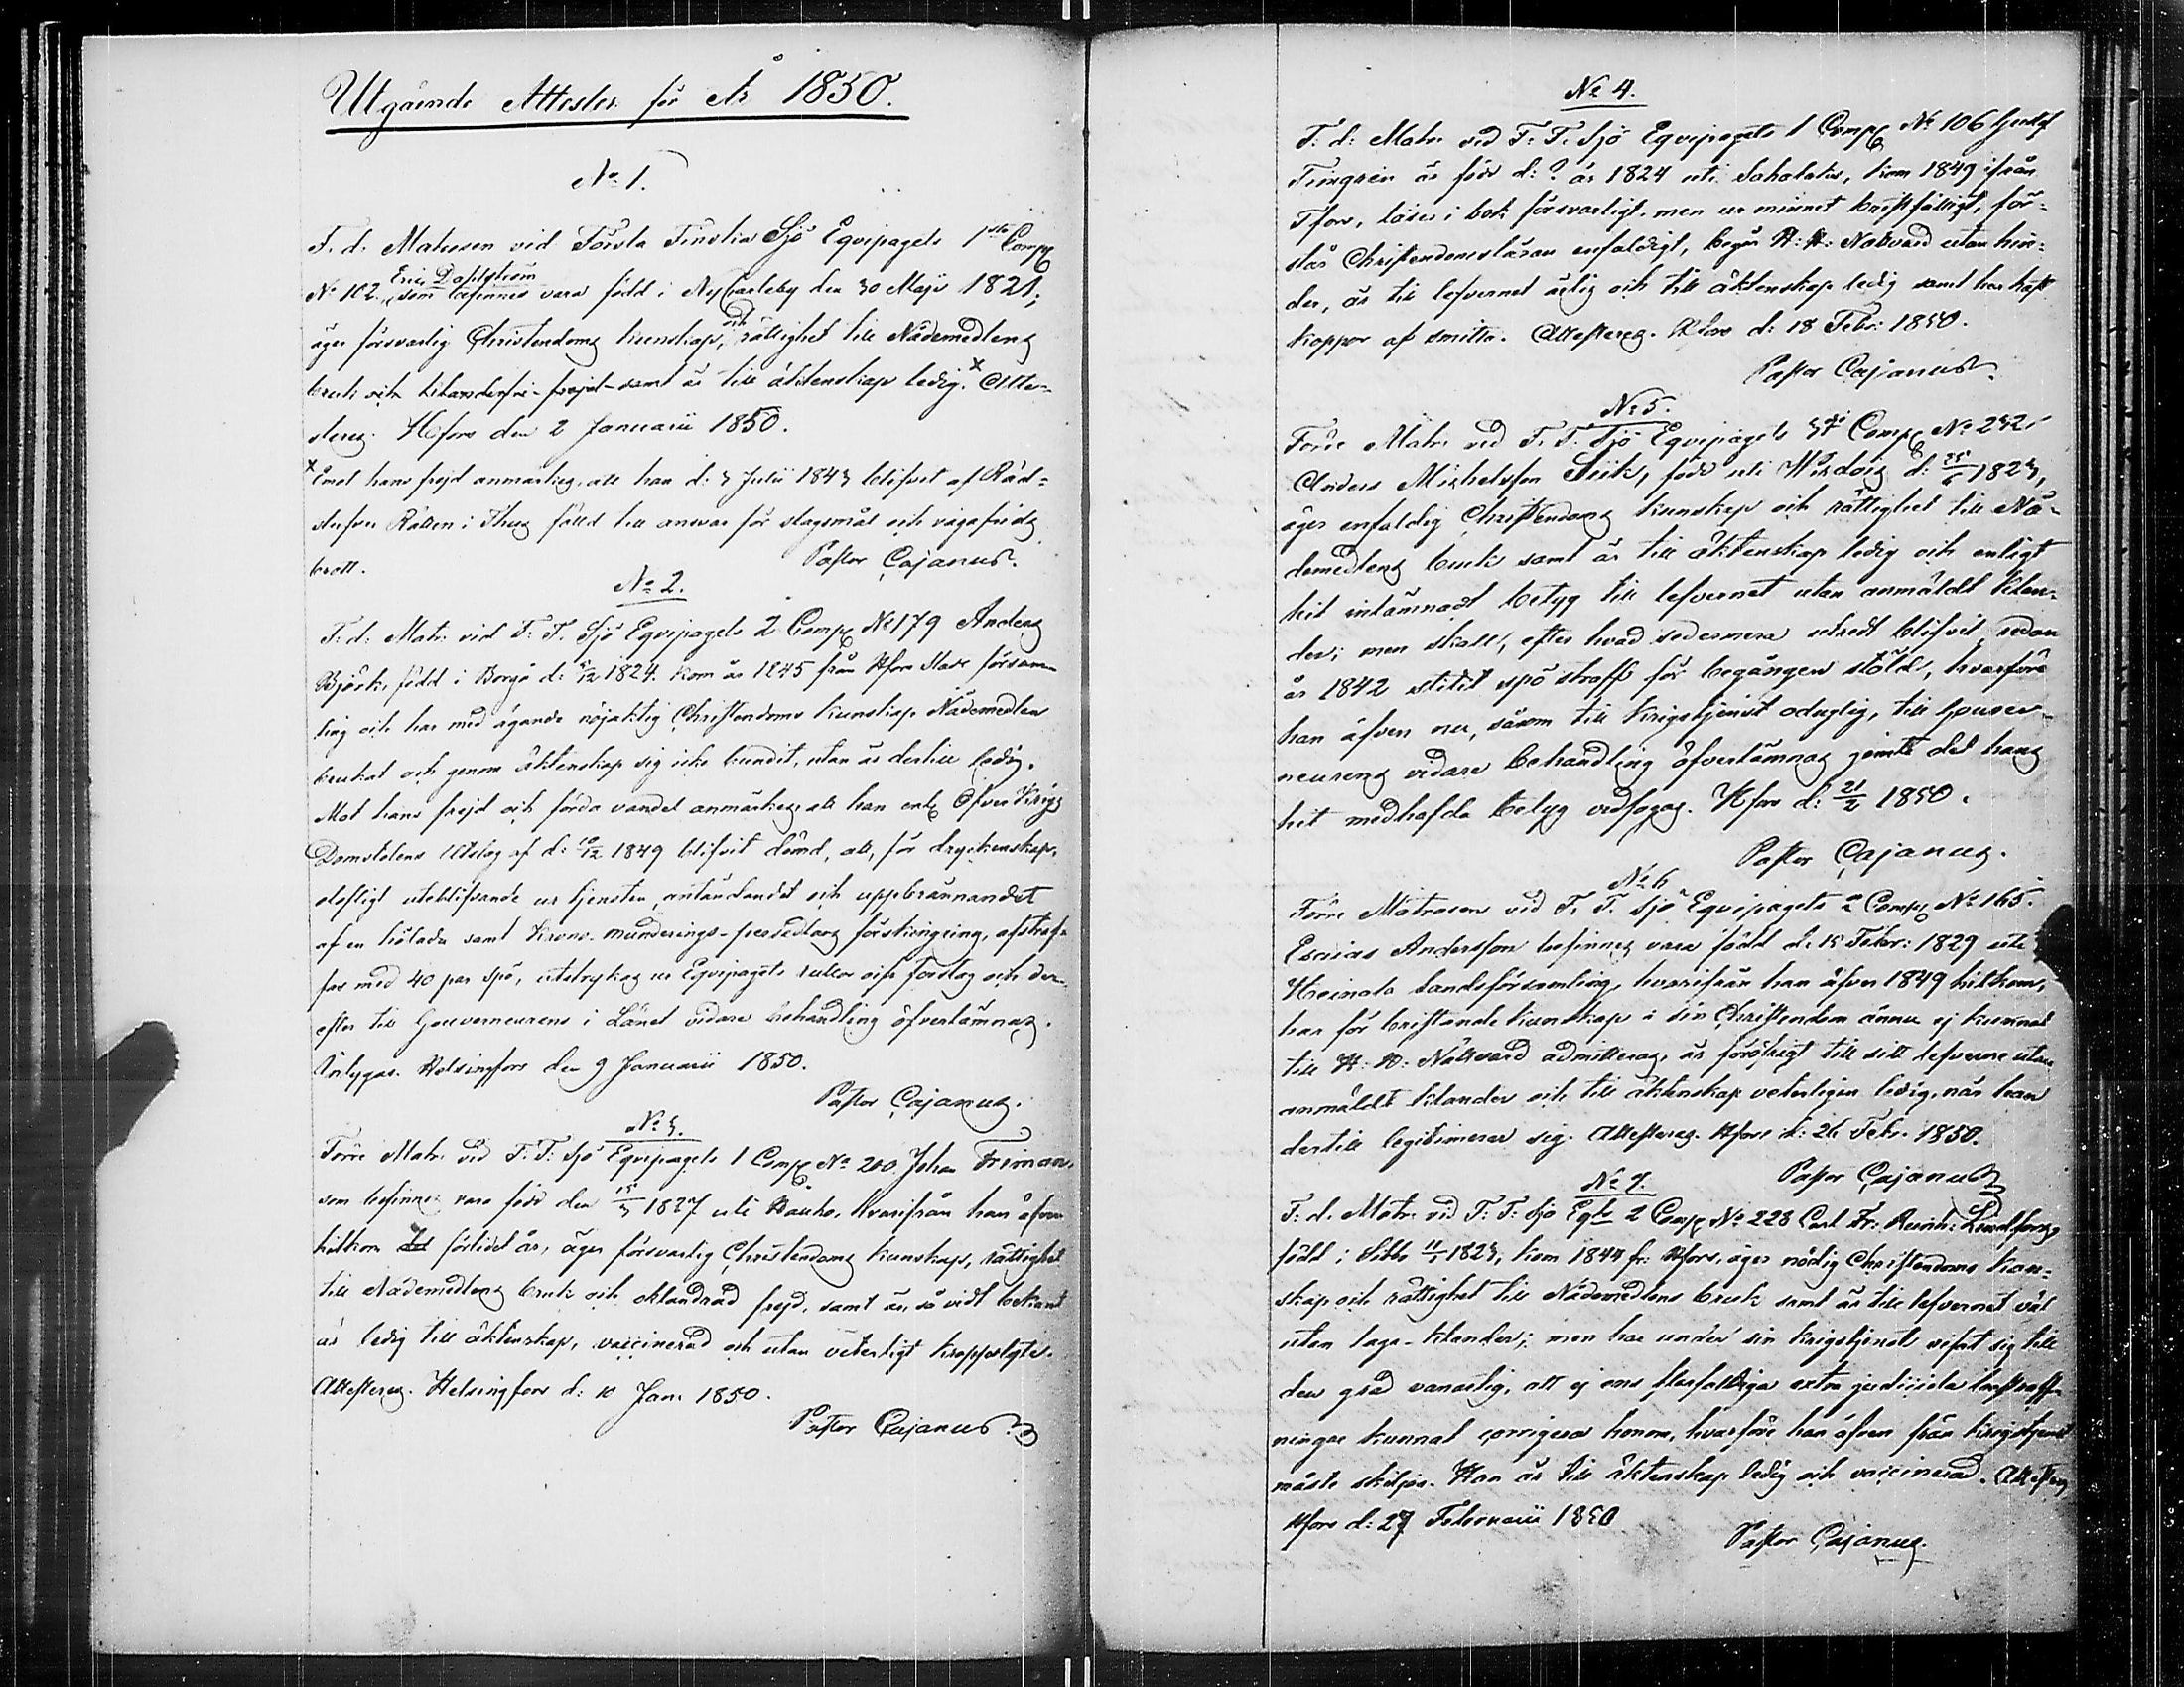 Utgående Attester för År 1850.
No 1.
F. d. Matrosen vid Första Finska Sjö Equipagets 1sta Comp.
No 102. Eric Dahlström som befinnes vara född i NyCarleby den 30 Maji 1821,
äger försvarlig Christendoms kunskap, och rättighet till Nådemedlens
bruk och klanderfri frejd samt är till äktenskap ledig. x Atte-
steras. Hfors den 2 Januarii 1850.
x Emot hans frejd anmärkes, att han d: 3 Julii 1843 blifvit af Råd-
stufvu Rätten i fälld till ansvar för slagsmål och
brott. Pastor Cajanus.
No 2.
F: d: Matr. vid F: F. Sjö Equipagets 2 Comp. No 179 Anders
Björk, född i Borgå d: /12 1824. kom år 1845 från Hfors försam-
ling och har med ägande nöjaktig Christendoms kunskap Nådemedlen
brukat och genom äktenskap sig icke bundit, utan är dertill ledig.
Mot hans frejd och förda vandel anmärkes, att han enl. Öfver Krigs
Domstolens Utslag af d: 10/12 1849 blifvit dömd, att, för dryckenskap,
olofligt uteblifvande ur tjensten, antändandet och uppbrännandet
af en hölada samt Krono-munderings-persedlars förskingring, afstraf-
fas med 40 par spö, utstrykas ur Equipagets rullor och förslag och der-
efter till Gouverneurens i Länet vidare behandling öfverlämnas.
Betygar. Helsingfors den 9 Januarii 1850.
Pastor Cajanus.
No 3.
Förre Matr. vid F: F: Sjö Equipagets 1 Comp. No 200 Johan Friman,
som befinnes vara född den 15/3 1827 uti, hvarifrån han äfven
hitkom förlidet år, äger försvarlig Christendoms kunskap, rättighet
till Nådemedlens bruk och oklandrad frejd, samt är, så vidt bekant
är ledig till äktenskap, vaccinerad och utan veterligt kroppslyte.
Attesteras. Helsingfors d: 10 Jan. 1850.
Pastor Cajanus
No 4.
F: d: Matr. vid F: F. Sjö Equipagets 1 Comp. No 106 Gustaf
är född d: ? år 1824 uti, kom 1849 ifrån
Tfors, läser i bok försvarligt, men ur minnet bristfälligt, för-
står Christendomsläran enfaldigt, begår H: H: Nattvard utan hin-
der, är till lefvernet ärlig och till äktenskap ledig samt har haft
koppor af smitta. Attesteras. Hfors d: 18 Febr: 1850.
Pastor Cajanus.
No 5.
Förre Matr. vid F. F. Sjö Equipagets Comp. No 232
Anders Michelsson Siik, född uti d: 25/6 1823,
äger enfaldig Christendoms kunskap och rättighet till Nå-
demedlens bruk samt är till äktenskap ledig och enligt
hit inlämnadt betyg till lefvernet utan anmäldt klan-
der; men skall, efter hvad sedermera utredt blifvit, redan
år 1842 slitit spö straff för begången stöld, hvarföre
han äfven nu, såsom till krigstjenst oduglig, till Gouver-
neurens vidare behandling öfverlämnas jemte det hans
hit medhafda betyg vidfogas. Hfors d: 21/2 1850.
Pastor Cajanus.
No 6
Förre Matrosen vid F. F. Sjö Equipagets 2 Comp. No 165.
Esaias Andersson befinnes vara född d: 15 Febr: 1829 uti
Heinola landsförsamling, hvarifrån han äfven 1849 hitkom,
har för bristande kunskap i sin Christendom ännu ej kunnat
till H: H: Nattvard admitteras, är föröfrigt till sitt lefverne utan
anmäldt klander och till äktenskap veterligen ledig, när han
dertill legitimerar sig. Attesteras. Hfors d: 26 Febr. 1850.
Pastor Cajanus
No 7.
F: d. Matr. vid F: F: Sjö Eqts 2 Comp. No 228 Carl Fr: Lindfors,
född i Sibbo 11/1 1823, kom 1844 fr: Hfors, äger nödig Christendoms kun-
skap och rättighet till Nådemedlens bruk samt är till lefvernet väl
utan laga-klander; men har under sin krigstjenst visat sig till
den grad vanartig, att ej ens flerfaldiga extra judiciela bestraff-
ningar kunnat corrigera honom, hvarföre han äfven från krigstjenst
måste skiljas. Han är till äktenskap ledig och vaccinerad. Attesteras
Hfors d: 27 Februarii 1850
Pastor Cajanus.